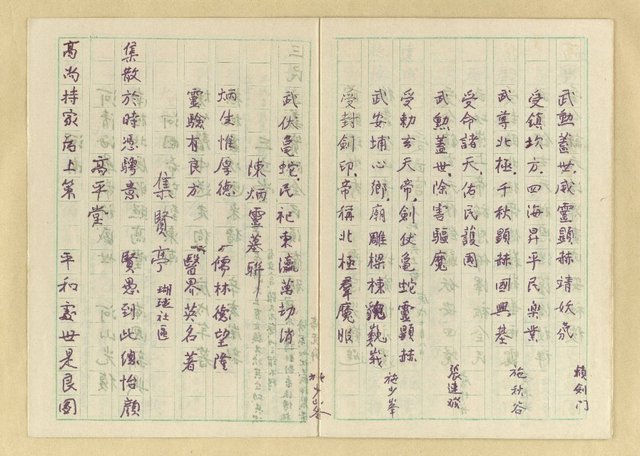 武勳蓋世．威靈顯赫靖妖氛
賴剑门
受鎮坎方．四海昇平民樂業
武尊北極．千秋顯赫國興基
施秋谷
受命諸天．佑民護國
武勲蓋世．除害驅魔
張達
受勅玄天帝．劍仗亀蛇靈顯赫
武安埔心鄉．廟雕樑棟巍峩
施少峯
受封劍印．帝稱北極羣魔服
武伏亀蛇．民祀東瀛萬劫消
施少峯
陳炳靈墓聯
炳生惟厚德 儒林德望隆
靈驗有良方 醫界英名著
集賢亭 瑚璉社區
集散於時憑騁意 賢愚到此總怡顏
高平堂
高尚持家為上策 平和處世是良圖